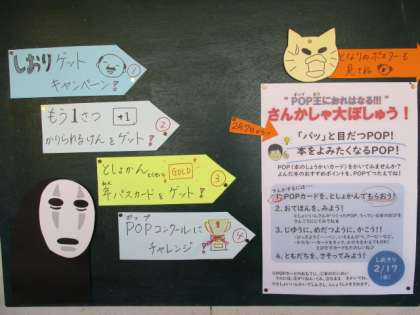 しおりゲット
キャンペーン!
①
もう1さつ +1
かりられるけんをゲット!
②
としょかん GOLD
年パスカードをゲット?
③
ポップ
POPコンクールに
チャレンジ
④
となりのポスターも
見てね
"POP王におれはなる!!!"
さんかしゃ大ぼしゅう!
「パッ」と目だつPOP!
本をよみたくなるPOP!
POP(本のしょうかいカード)をかいてみませんか?
よんだ本のおすすめポイントを、POPでつたえよう!
1.POPカードを、としょかんでもらおう!
2.おてほんを、みよう!
3.じゆうに、めだつように、かこう!!
4.ともだちを、さそってみよう!
しめきり
2/17